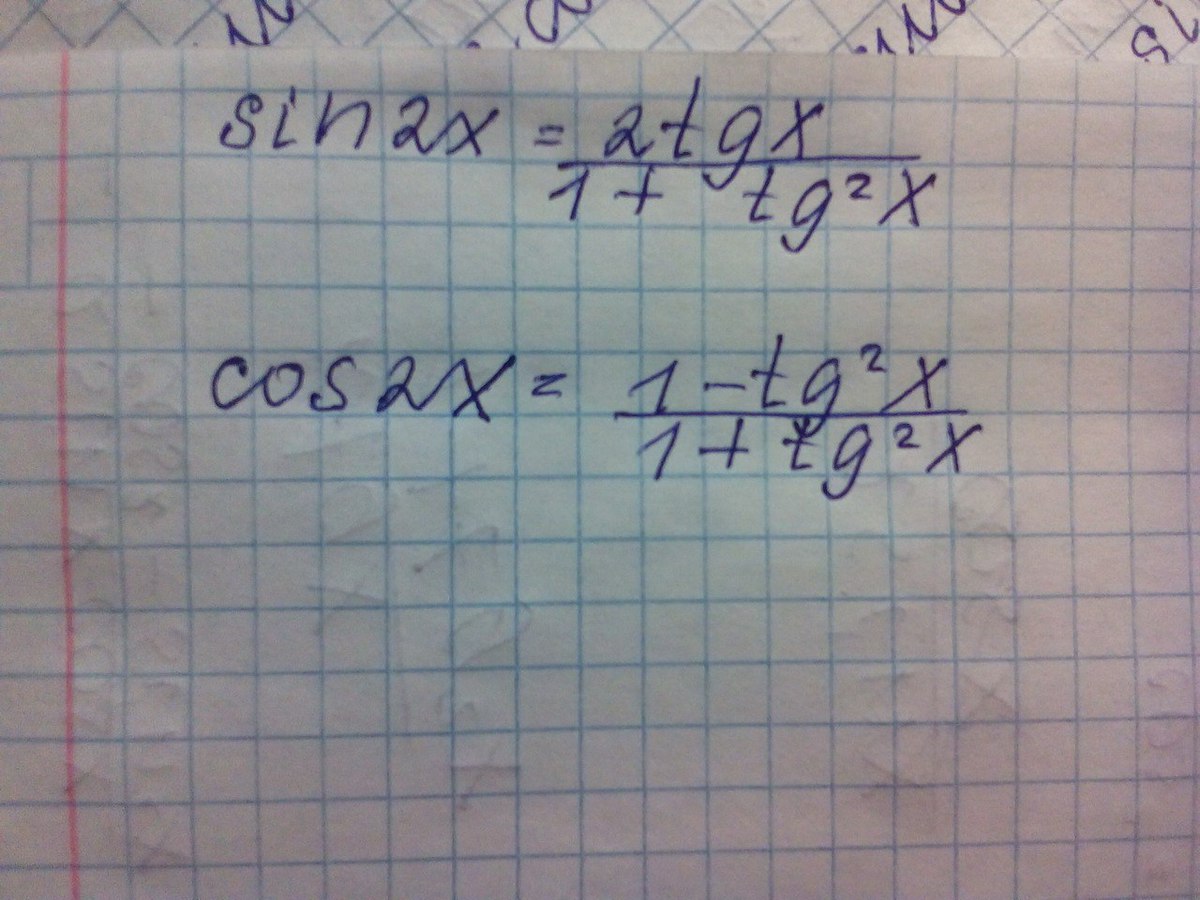 sin2x = 2tgx
1 + tg²x
cos2x = 1-tg²x
1+tg²x